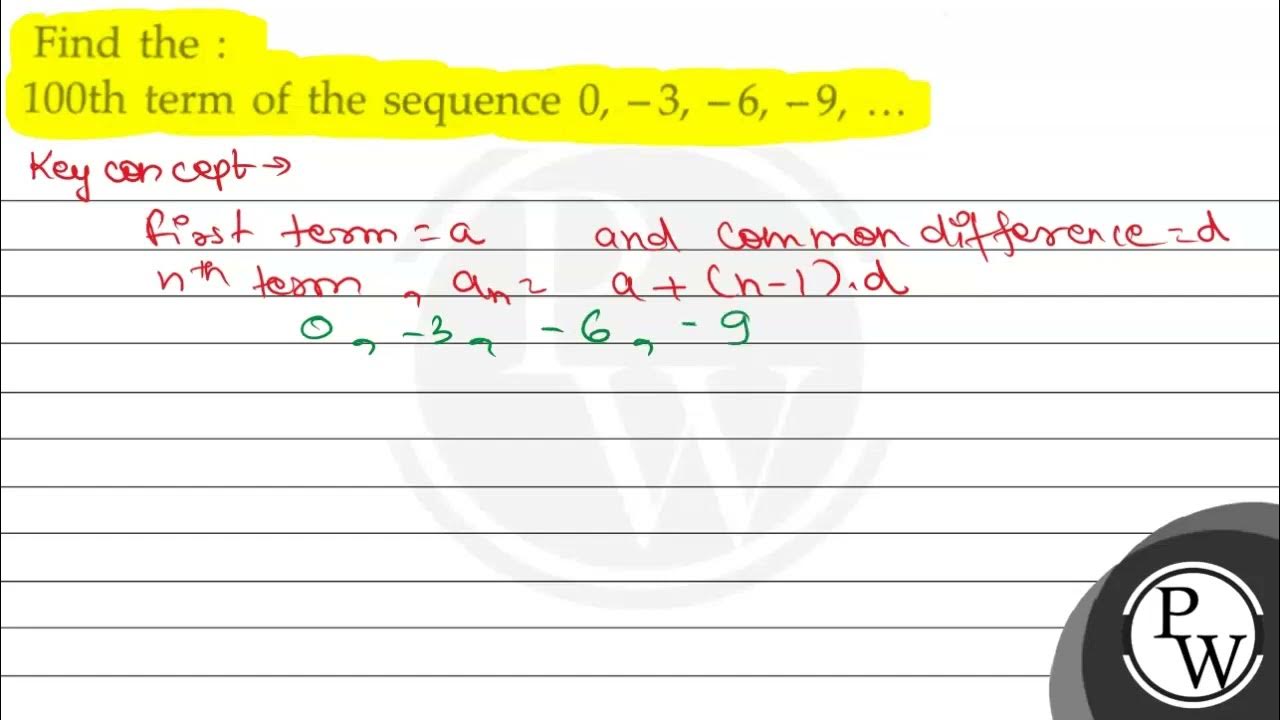 Find the :
100th term of the sequence 0, −3, −6, −9, ...
Key concept→
first term = a and common difference = d
nth term , an = a + (n-1).d
0, -3, -6, -9
PW
PW